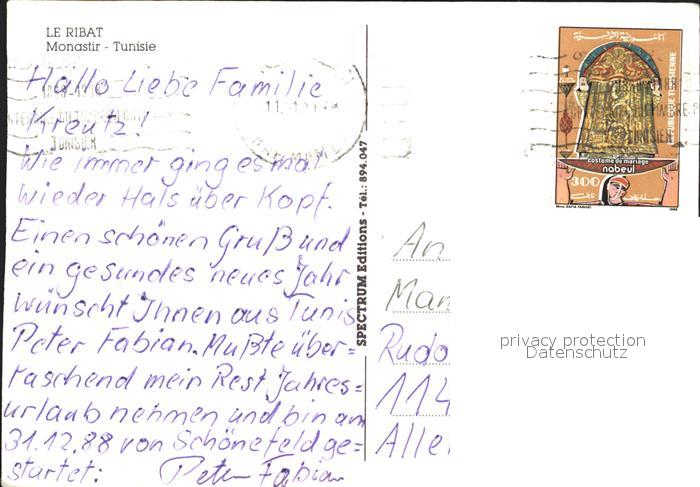 LE RIBAT
Monastir - Tunisie
Hallo Liebe Familie
Kreutz!
Wie immer ging es mal
wieder Hals über Kopf.
Einen schönen Gruß und
ein gesundes neues Jahr
wünscht Ihnen aus Tunis
Peter Fabian. Mußte über=
raschend mein Rest Jahres=
urlaub nehmen und bin am
31.12.88 von Schönefeld ge=
startet:
Peter Fabian
SPECTRUM Editions - Tél.: 894.047
REPUBLIQUE TUNISIENNE
costume de mariage
nabeul
300
1988
An
Man
Rudo
114
Alle
privacy protection
Datenschutz